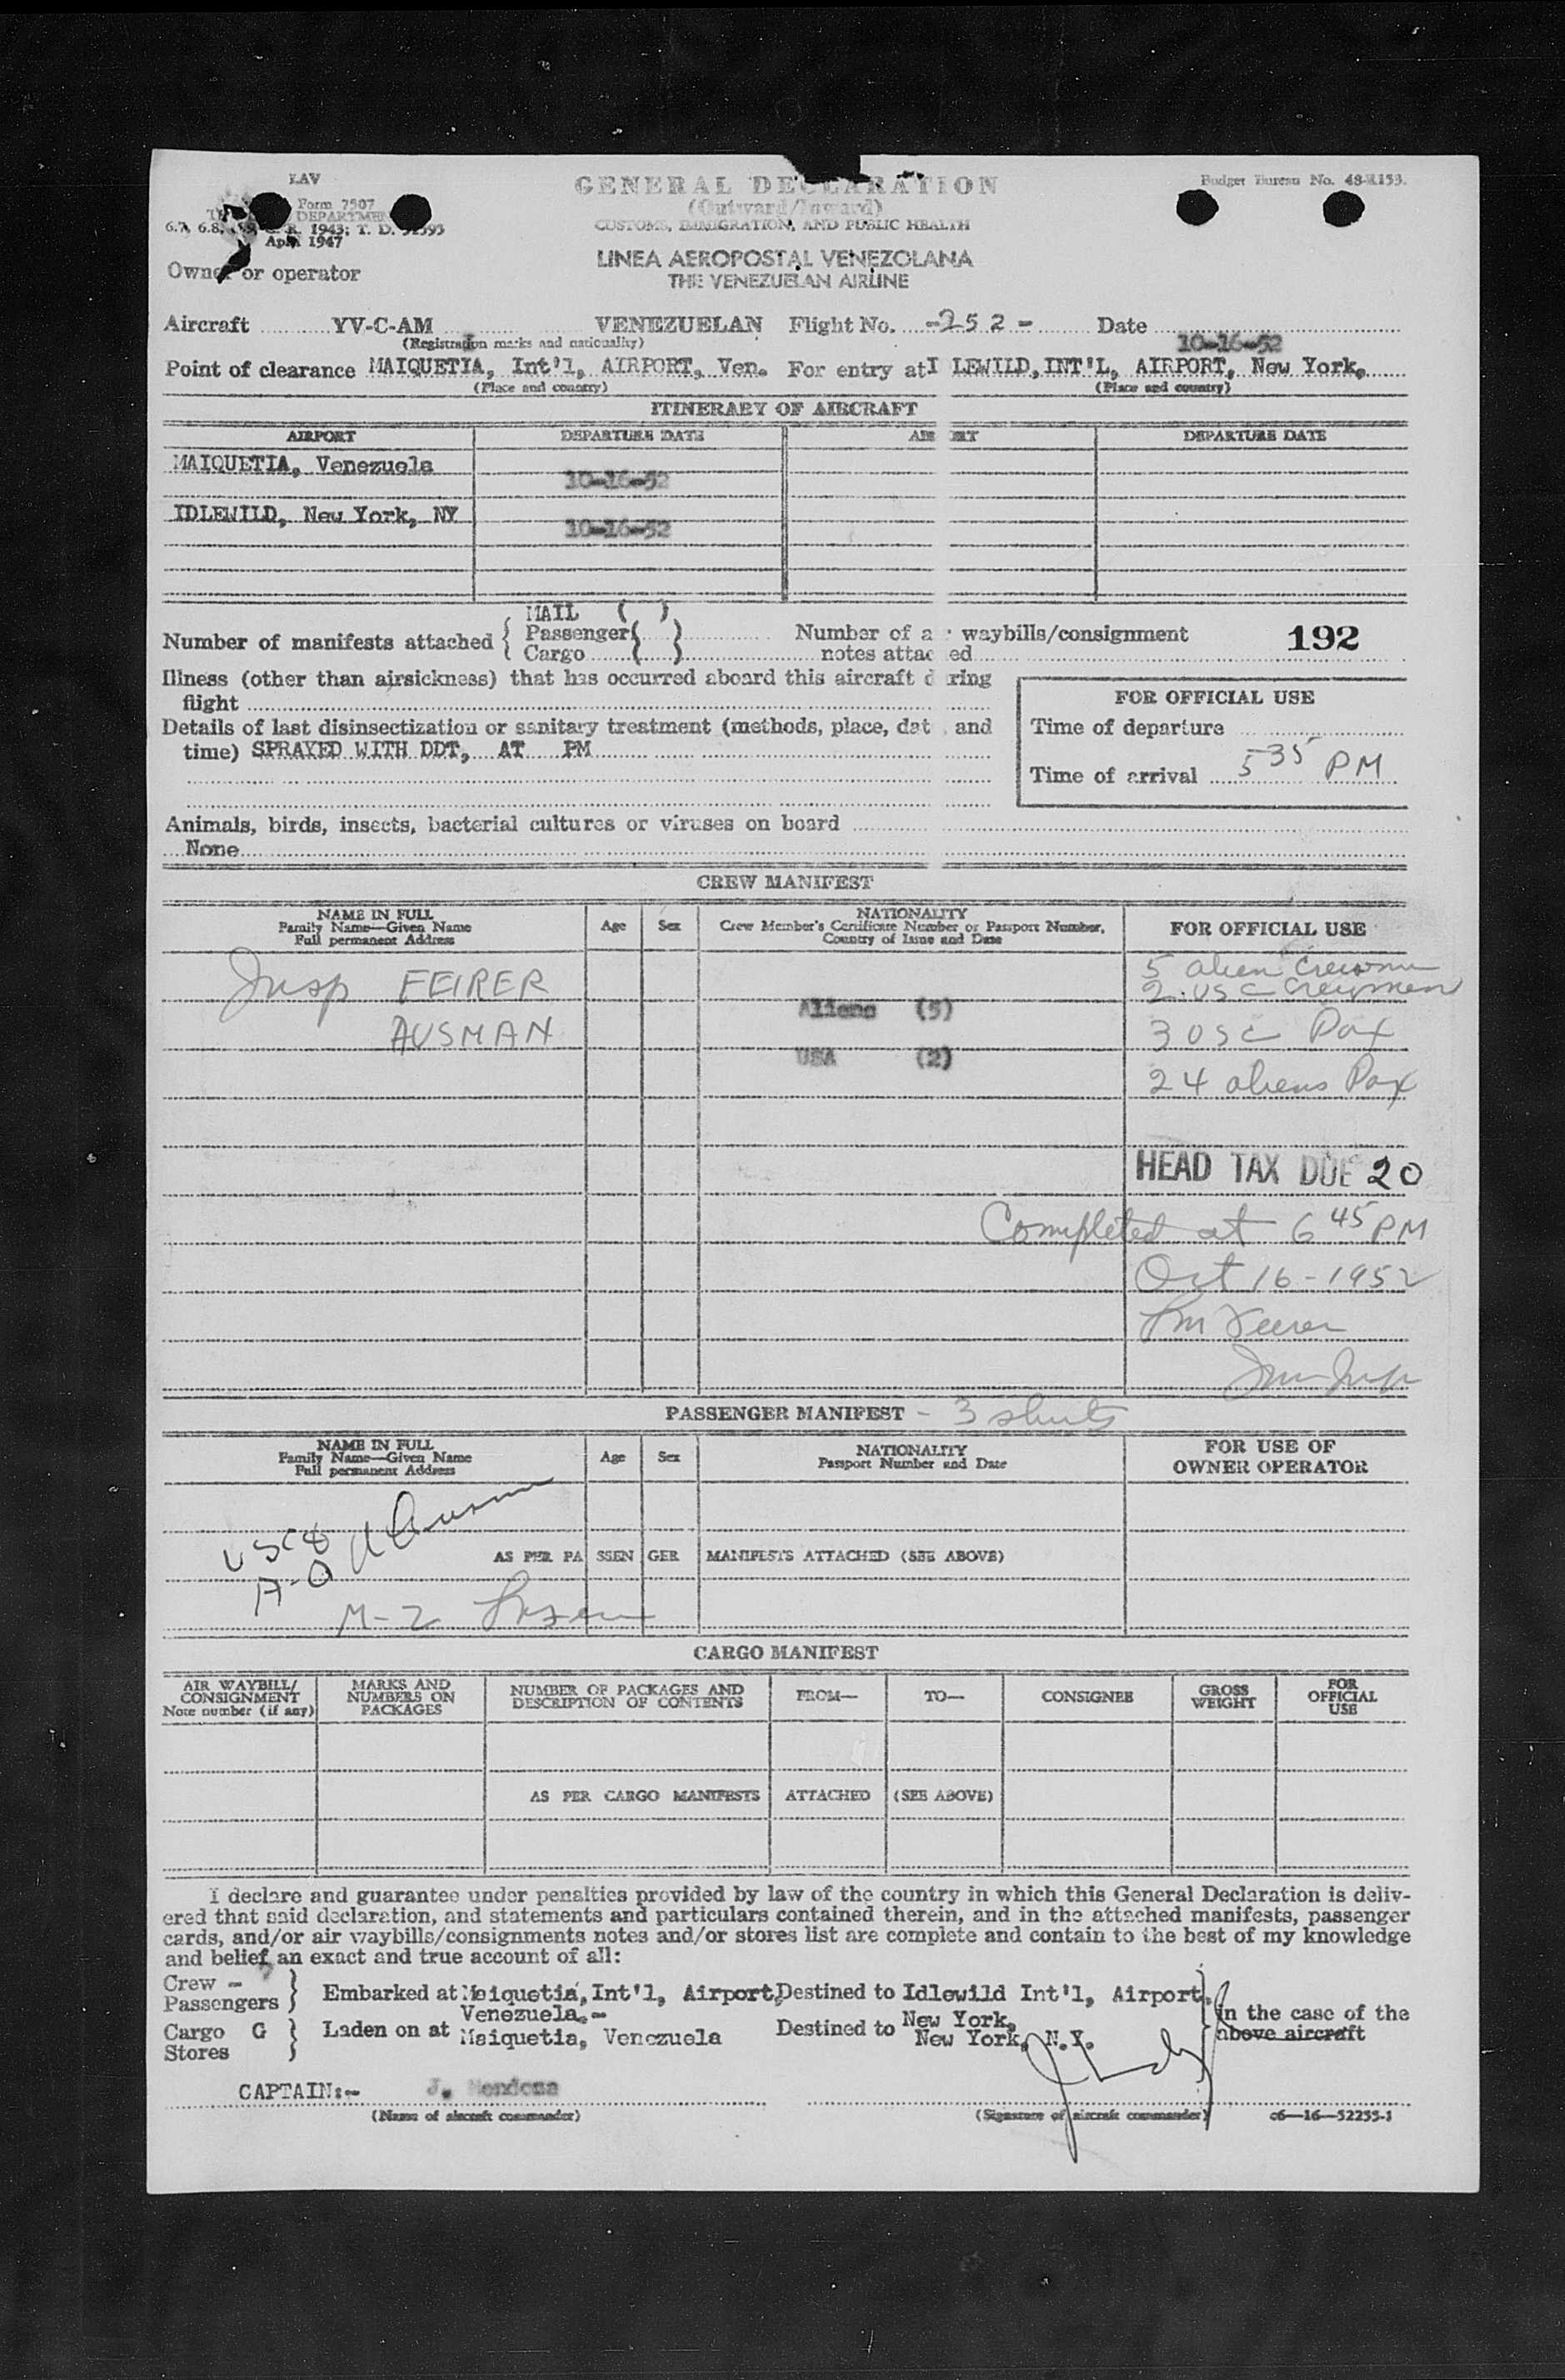 LAV
GENERAL DECLARATION
Budget Bureau No. 48-R153.
(Outward/Inward)
Form 7507
DEPARTMEN
CUSTOMS, IMMIGRATION, AND PUBLIC HEALTH
6.7, 6.8, R. 1943; T. D.
April 1947
LINEA AEROPOSTAL VENEZOLANA
Owner or operator
THE VENEZUELAN AIRLINE
Aircraft YV-C-AM VENEZUELAN Flight No. -252- Date 10-16-52
(Registration marks and nationality)
Point of clearance MAIQUETIA, Int'l, AIRPORT, Ven. For entry at I LEWILD, INT'L, AIRPORT, New York,
(Place and country) (Place and country)
ITINERARY OF AIRCRAFT
AIRPORT DEPARTURE DATE AIR ORT DEPARTURE DATE
MAIQUETIA, Venezuela 10-16-52
IDLEWILD, New York, NY 10-16-52
MAIL ( )
Number of manifests attached { Passenger ( ) Number of a r waybills/consignment 192
Cargo ( ) notes attac ed
Illness (other than airsickness) that has occurred aboard this aircraft d ring
flight
FOR OFFICIAL USE
Details of last disinsectization or sanitary treatment (methods, place, dat , and
Time of departure
time) SPRAYED WITH DDT, AT PM
Time of arrival 5 35 PM
Animals, birds, insects, bacterial cultures or viruses on board
None
CREW MANIFEST
NAME IN FULL
Family Name—Given Name
Full permanent Address
Age Sex
NATIONALITY
Crew Member's Certificate Number or Passport Number,
Country of Issue and Date
FOR OFFICIAL USE
Insp FEIRER
AUSMAN
Aliens (5)
USA (2)
5 alien Crewmen
2 USC Crewmen
3 USC Pax
24 aliens Pax
HEAD TAX DUE 20
Completed at 6 45 PM
Oct 16-1952
Feirer
Imm Insp
PASSENGER MANIFEST - 3 sheets
NAME IN FULL
Family Name—Given Name
Full permanent Address
Age Sex
NATIONALITY
Passport Number and Date
FOR USE OF
OWNER OPERATOR
AS PER PA SSEN GER MANIFESTS ATTACHED (SEE ABOVE)
M-2
CARGO MANIFEST
AIR WAYBILL/
CONSIGNMENT
Note number (if any)
MARKS AND
NUMBERS ON
PACKAGES
NUMBER OF PACKAGES AND
DESCRIPTION OF CONTENTS
FROM—
TO—
CONSIGNEE
GROSS
WEIGHT
FOR
OFFICIAL
USE
AS PER CARGO MANIFESTS ATTACHED (SEE ABOVE)
I declare and guarantee under penalties provided by law of the country in which this General Declaration is deliv-
ered that said declaration, and statements and particulars contained therein, and in the attached manifests, passenger
cards, and/or air waybills/consignments notes and/or stores list are complete and contain to the best of my knowledge
and belief an exact and true account of all:
Crew - 7
Passengers } Embarked at Maiquetia, Int'l, Airport, Destined to Idlewild Int'l, Airport,
Venezuela.- New York,
Cargo G } Laden on at Maiquetia, Venezuela Destined to New York, N.Y.
Stores
In the case of the
above aircraft
CAPTAIN:- J. Mendoza
(Name of aircraft commander) (Signature of aircraft commander) c6—16—52255-1